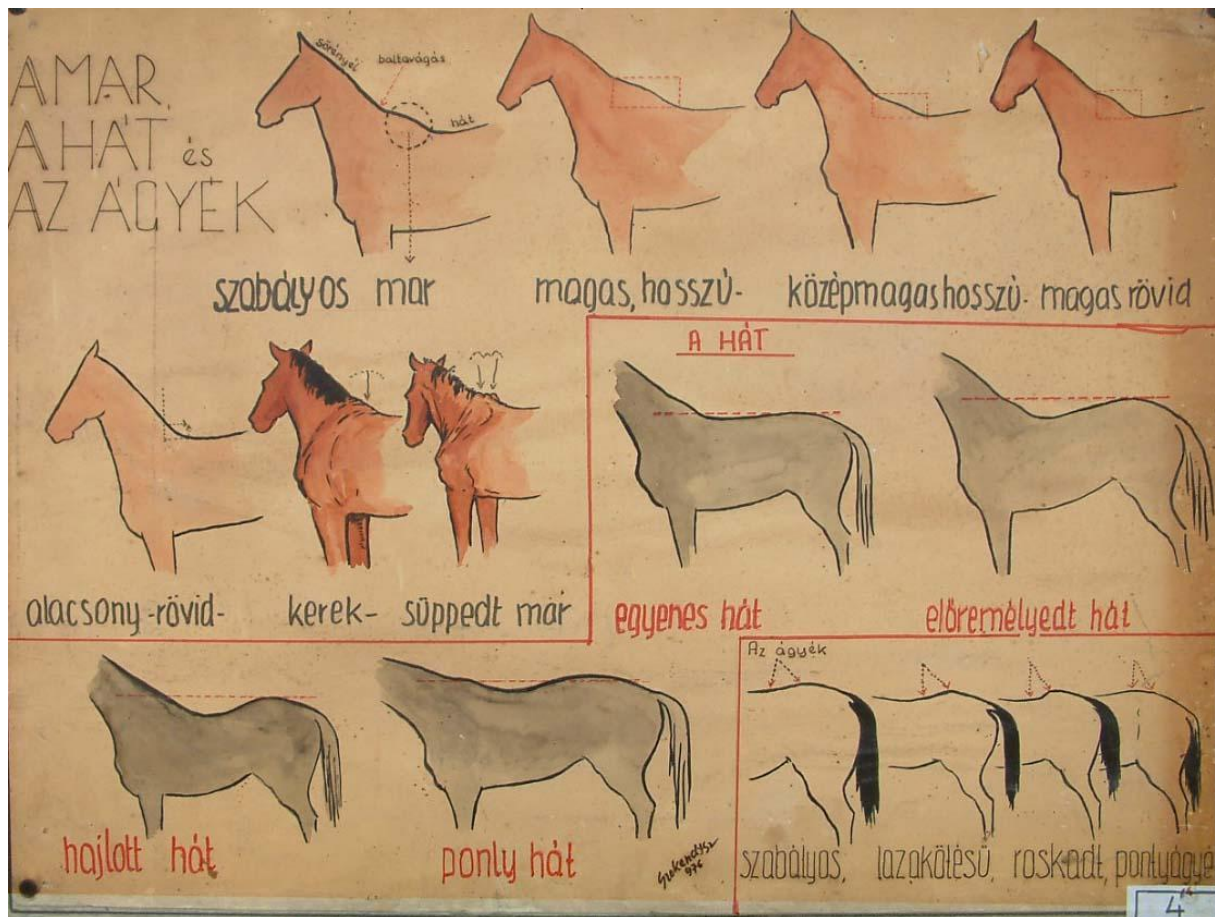 A MAR,
A HÁT és
AZ ÁGYÉK
sörényél
baltavágás
hát
szabályos mar
magas, hosszú-
középmagas hosszú-
magas rövid
alacsony-rövid-
kerek-
süppedt mar
A HÁT
egyenes hát
előremélyedt hát
hajlott hát
ponty hát
976
Az ágyék
szabályos,
lazakötésű,
roskadt,
pontyágyé
4